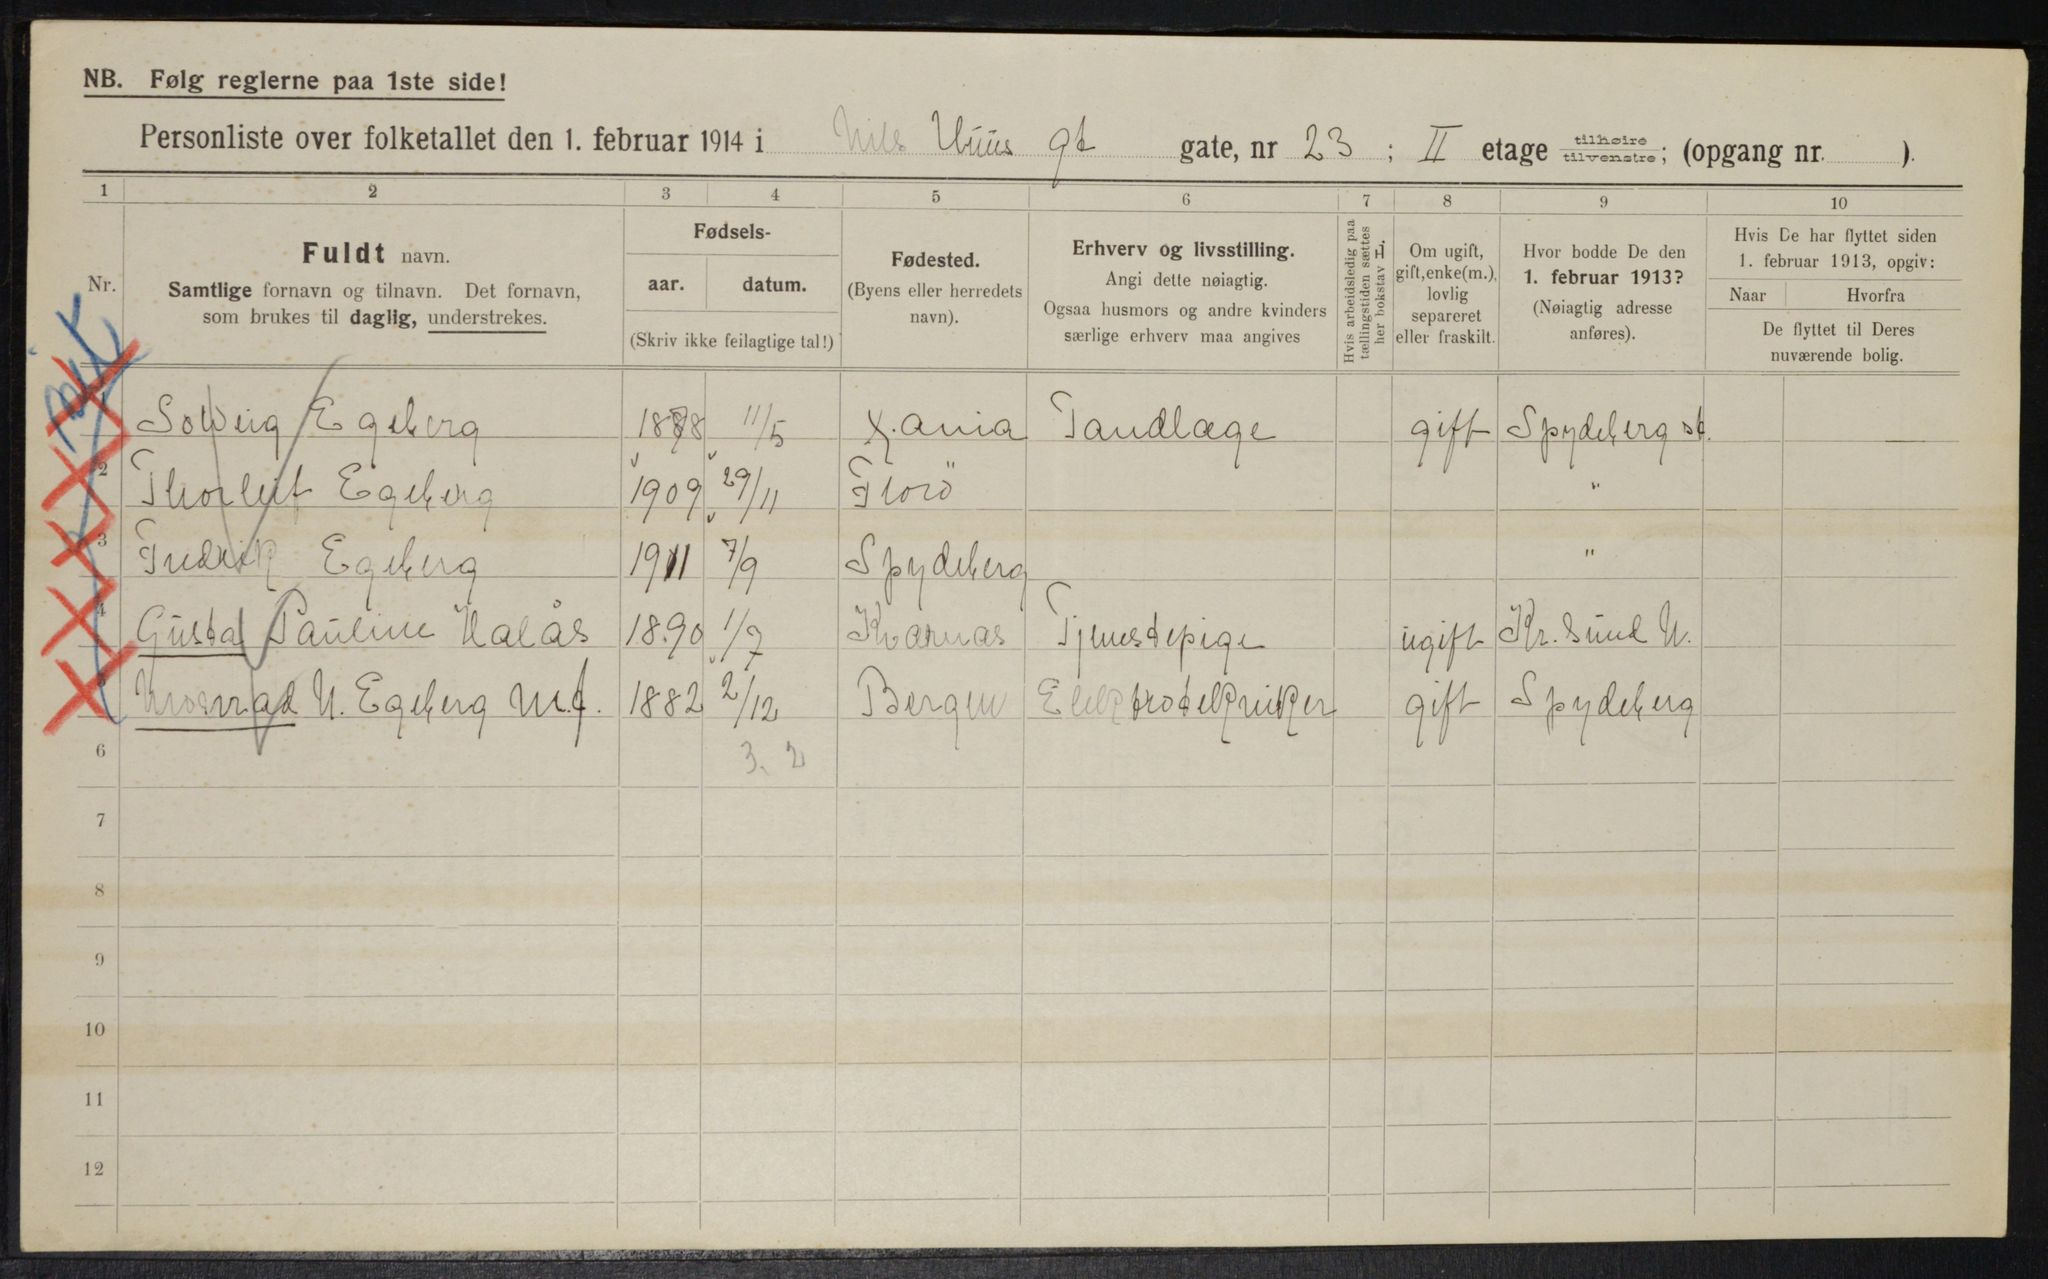 NB. Følg reglerne paa 1ste side!
Personliste over folketallet den 1. februar 1914 i Nils Huus gt gate, nr 23; II etage tilhøire/tilvenstre; (opgang nr. ).
1 2 3 4 5 6 7 8 9 10
Nr.
Fuldt navn.
Samtlige fornavn og tilnavn. Det fornavn,
som brukes til daglig, understrekes.
Fødsels-
aar. datum.
(Skriv ikke feilagtige tal!)
Fødested.
(Byens eller herredets
navn).
Erhverv og livsstilling.
Angi dette nøiagtig.
Ogsaa husmors og andre kvinders
særlige erhverv maa angives
Hvis arbeidsledig paa
tællingstiden sættes
her bokstav L.
Om ugift,
gift, enke(m.),
lovlig
separeret
eller fraskilt.
Hvor bodde De den
1. februar 1913?
(Nøiagtig adresse
anføres).
Hvis De har flyttet siden
1. februar 1913, opgiv:
Naar Hvorfra
De flyttet til Deres
nuværende bolig.
1 Solveig Egeberg 1878 11/5 X.ania Tandlæge gift Spydeberg st. —
2 Thorleif Egeberg 1909 29/11 Florö "
3 Fredrik Egeberg 1911 7/9 Spydeberg "
4 Gusta Pauline Halås 1890 1/7 Kvernæs Tjenestepige ugift Kr. Sund N.
5 N. Egeberg 1882 2/12 Bergen Elektrotekniker gift Spydeberg
6 3. 2
7
8
9
10
11
12